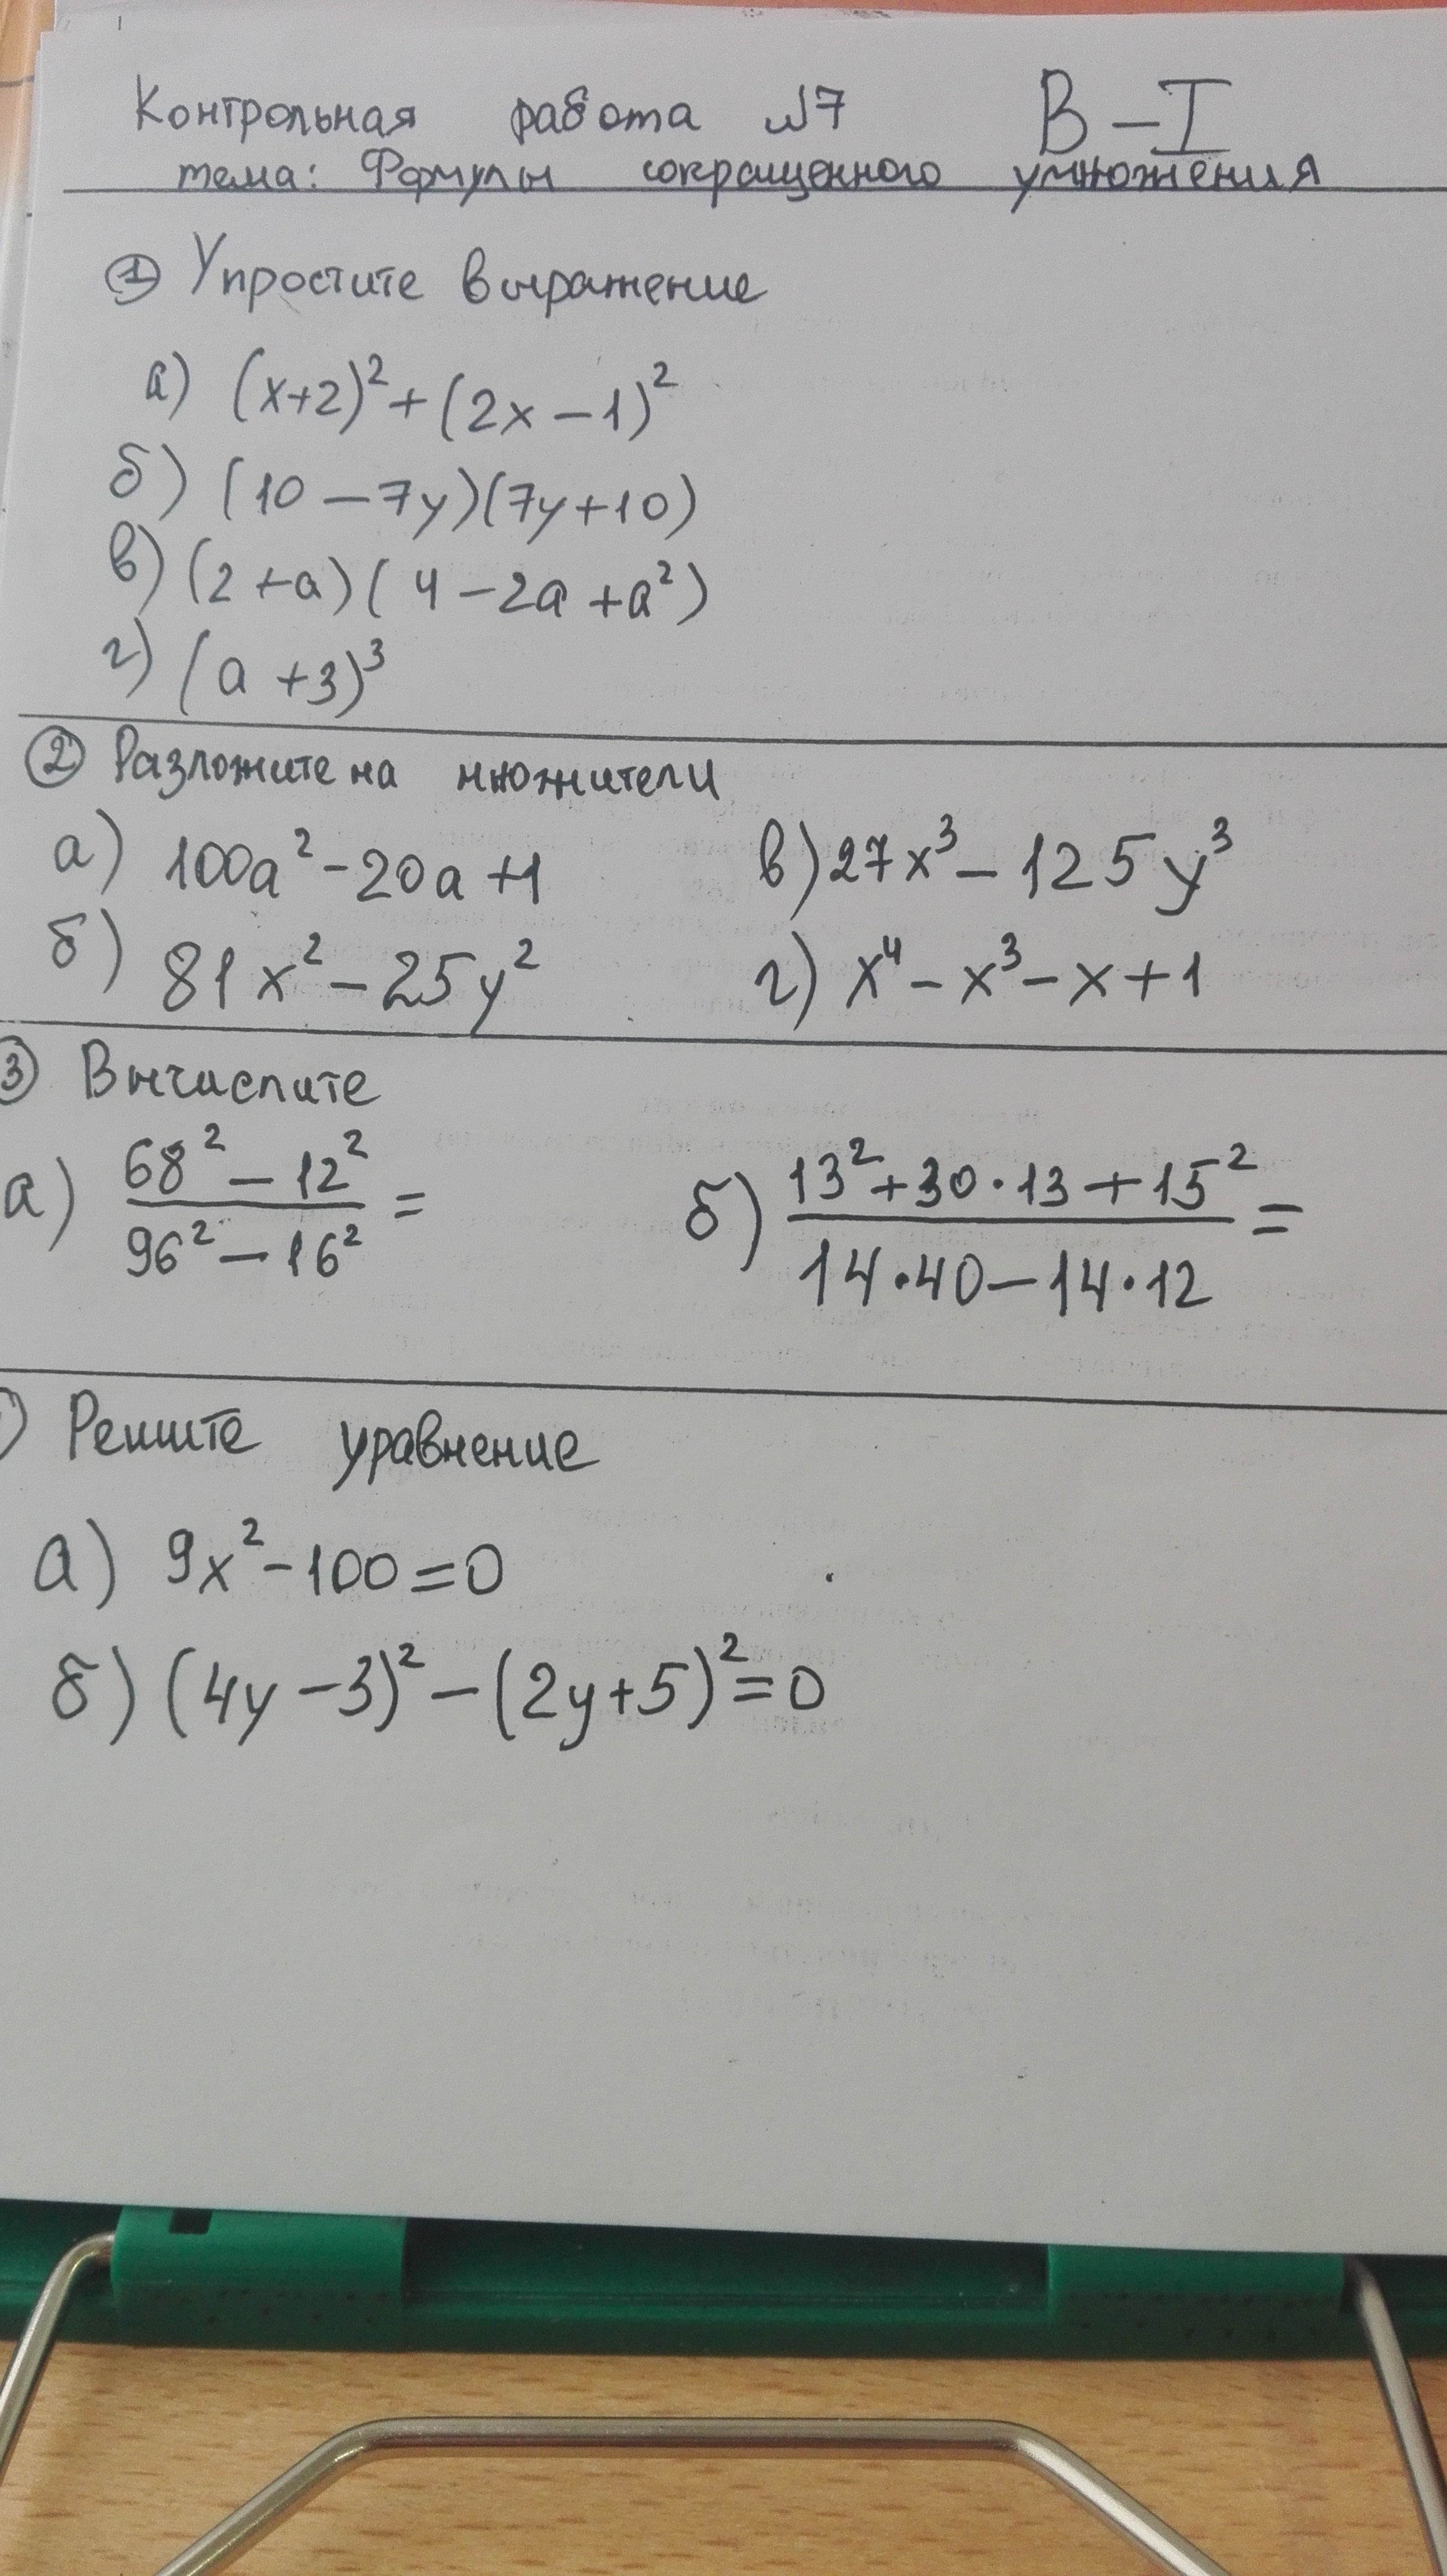 Контрольная работа №7 В-I
тема: Формулы сокращенного умножения
① Упростите выражение
а) (x+2)²+(2x-1)²
б) (10-7y)(7y+10)
в) (2+a)(4-2a+a²)
г) (a+3)³
② Разложите на множители
а) 100a²-20a+1
в) 27x³-125y³
б) 81x²-25y²
г) x⁴-x³-x+1
③ Вычислите
а) (68²-12²)/(96²-16²)=
б) (13²+30·13+15²)/(14·40-14·12)=
) Решите уравнение
а) 9x²-100=0
б) (4y-3)²-(2y+5)²=0